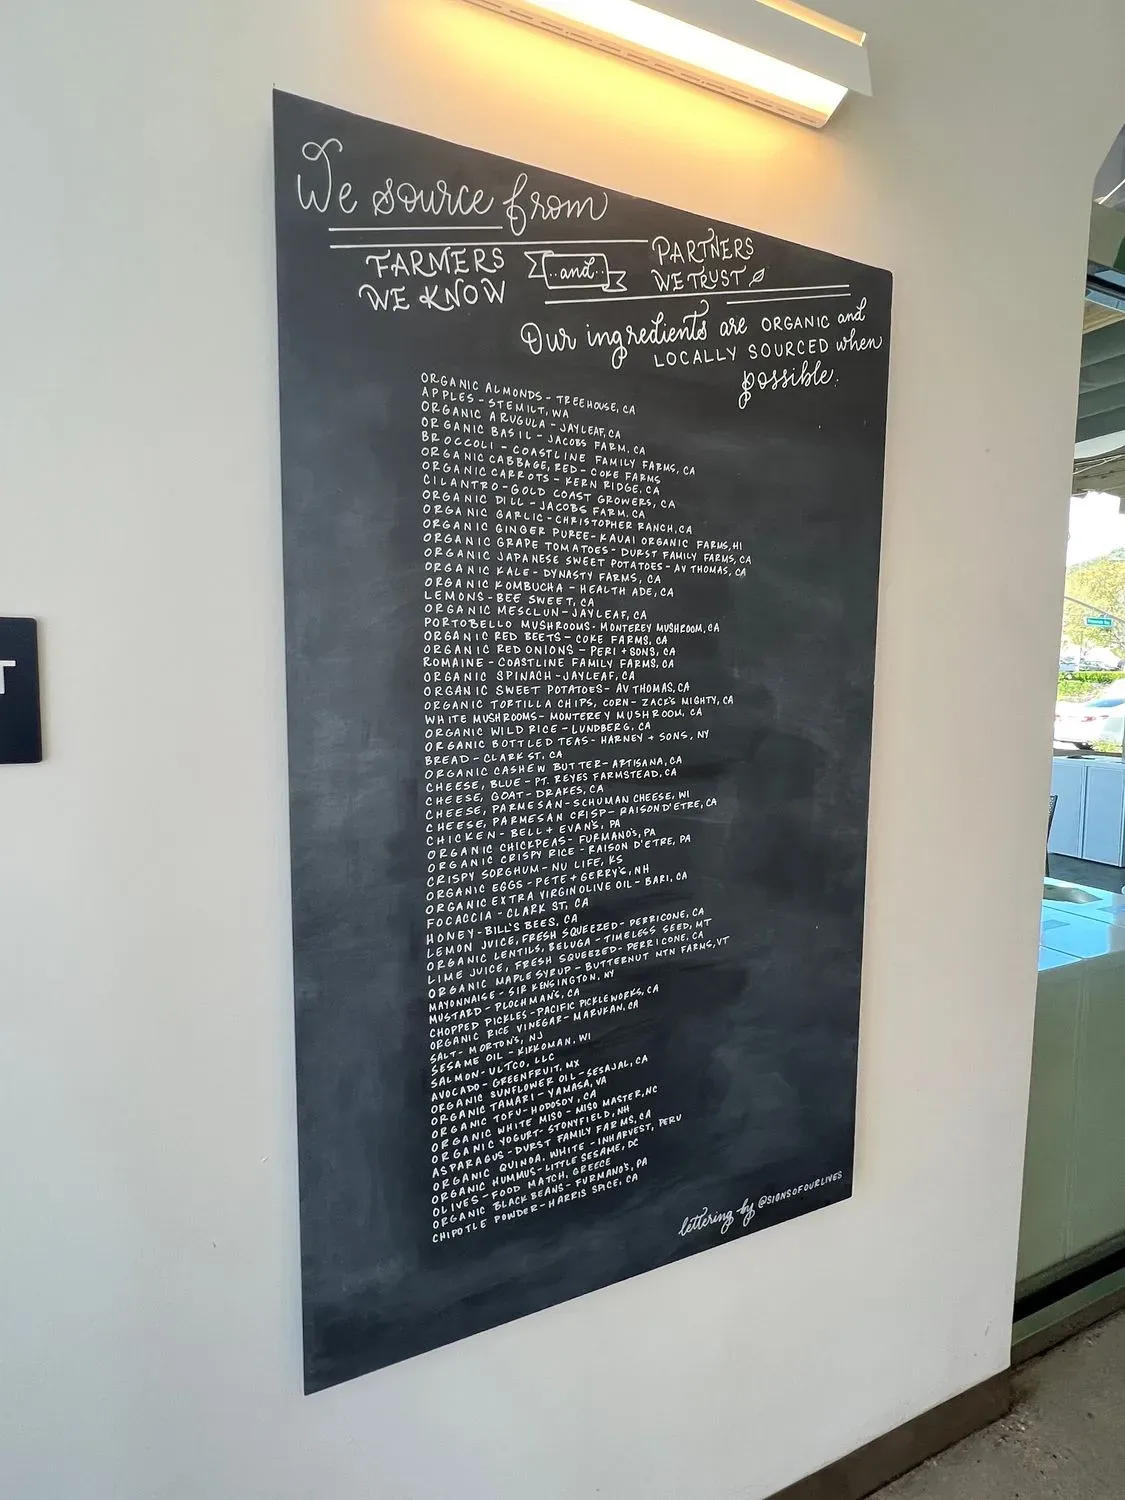 We source from
FARMERS
WE KNOW
..and..
PARTNERS
WE TRUST
Our ingredients are ORGANIC and
LOCALLY SOURCED when
possible.
ORGANIC ALMONDS - TREEHOUSE, CA
APPLES - STEMILT, WA
ORGANIC ARUGULA - JAYLEAF, CA
ORGANIC BASIL - JACOBS FARM, CA
BROCCOLI - COASTLINE FAMILY FARMS, CA
ORGANIC CABBAGE, RED - COKE FARMS
ORGANIC CARROTS - KERN RIDGE, CA
CILANTRO - GOLD COAST GROWERS, CA
ORGANIC DILL - JACOBS FARM, CA
ORGANIC GARLIC - CHRISTOPHER RANCH, CA
ORGANIC GINGER PUREE - KAUAI ORGANIC FARMS, HI
ORGANIC GRAPE TOMATOES - DURST FAMILY FARMS, CA
ORGANIC JAPANESE SWEET POTATOES - AV THOMAS, CA
ORGANIC KALE - DYNASTY FARMS, CA
ORGANIC KOMBUCHA - HEALTH ADE, CA
LEMONS - BEE SWEET, CA
ORGANIC MESCLUN - JAYLEAF, CA
PORTOBELLO MUSHROOMS - MONTEREY MUSHROOM, CA
ORGANIC RED BEETS - COKE FARMS, CA
ORGANIC RED ONIONS - PERI + SONS, CA
ROMAINE - COASTLINE FAMILY FARMS, CA
ORGANIC SPINACH - JAYLEAF, CA
ORGANIC SWEET POTATOES - AV THOMAS, CA
ORGANIC TORTILLA CHIPS, CORN - ZACK'S MIGHTY, CA
WHITE MUSHROOMS - MONTEREY MUSHROOM, CA
ORGANIC WILD RICE - LUNDBERG, CA
ORGANIC BOTTLED TEAS - HARNEY + SONS, NY
BREAD - CLARK ST, CA
ORGANIC CASHEW BUTTER - ARTISANA, CA
CHEESE, BLUE - PT. REYES FARMSTEAD, CA
CHEESE, GOAT - DRAKES, CA
CHEESE, PARMESAN - SCHUMAN CHEESE, WI
CHEESE, PARMESAN CRISP - RAISON D'ETRE, CA
CHICKEN - BELL + EVAN'S, PA
ORGANIC CHICKPEAS - FURMANO'S, PA
ORGANIC CRISPY RICE - RAISON D'ETRE, PA
CRISPY SORGHUM - NU LIFE, KS
ORGANIC EGGS - PETE + GERRY'S, NH
ORGANIC EXTRA VIRGIN OLIVE OIL - BARI, CA
FOCACCIA - CLARK ST, CA
HONEY - BILL'S BEES, CA
LEMON JUICE, FRESH SQUEEZED - PERRICONE, CA
ORGANIC LENTILS, BELUGA - TIMELESS SEED, MT
LIME JUICE, FRESH SQUEEZED - PERRICONE, CA
ORGANIC MAPLE SYRUP - BUTTERNUT MTN FARMS, VT
MAYONNAISE - SIR KENSINGTON, NY
MUSTARD - PLOCHMAN'S, CA
CHOPPED PICKLES - PACIFIC PICKLEWORKS, CA
ORGANIC RICE VINEGAR - MARUKAN, CA
SALT - MORTON'S, NJ
SESAME OIL - KIKKOMAN, WI
SALMON - ULTCO, LLC
AVOCADO - GREENFRUIT, MX
ORGANIC SUNFLOWER OIL - SESAJAL, CA
ORGANIC TAMARI - YAMASA, VA
ORGANIC TOFU - HODOSOY, CA
ORGANIC WHITE MISO - MISO MASTER, NC
ORGANIC YOGURT - STONYFIELD, NH
ASPARAGUS - DURST FAMILY FARMS, CA
ORGANIC QUINOA, WHITE - INHARVEST, PERU
ORGANIC HUMMUS - LITTLE SESAME, DC
OLIVES - FOOD MATCH, GREECE
ORGANIC BLACK BEANS - FURMANO'S, PA
CHIPOTLE POWDER - HARRIS SPICE, CA
lettering by @SIGNSOFOURLIVES
T